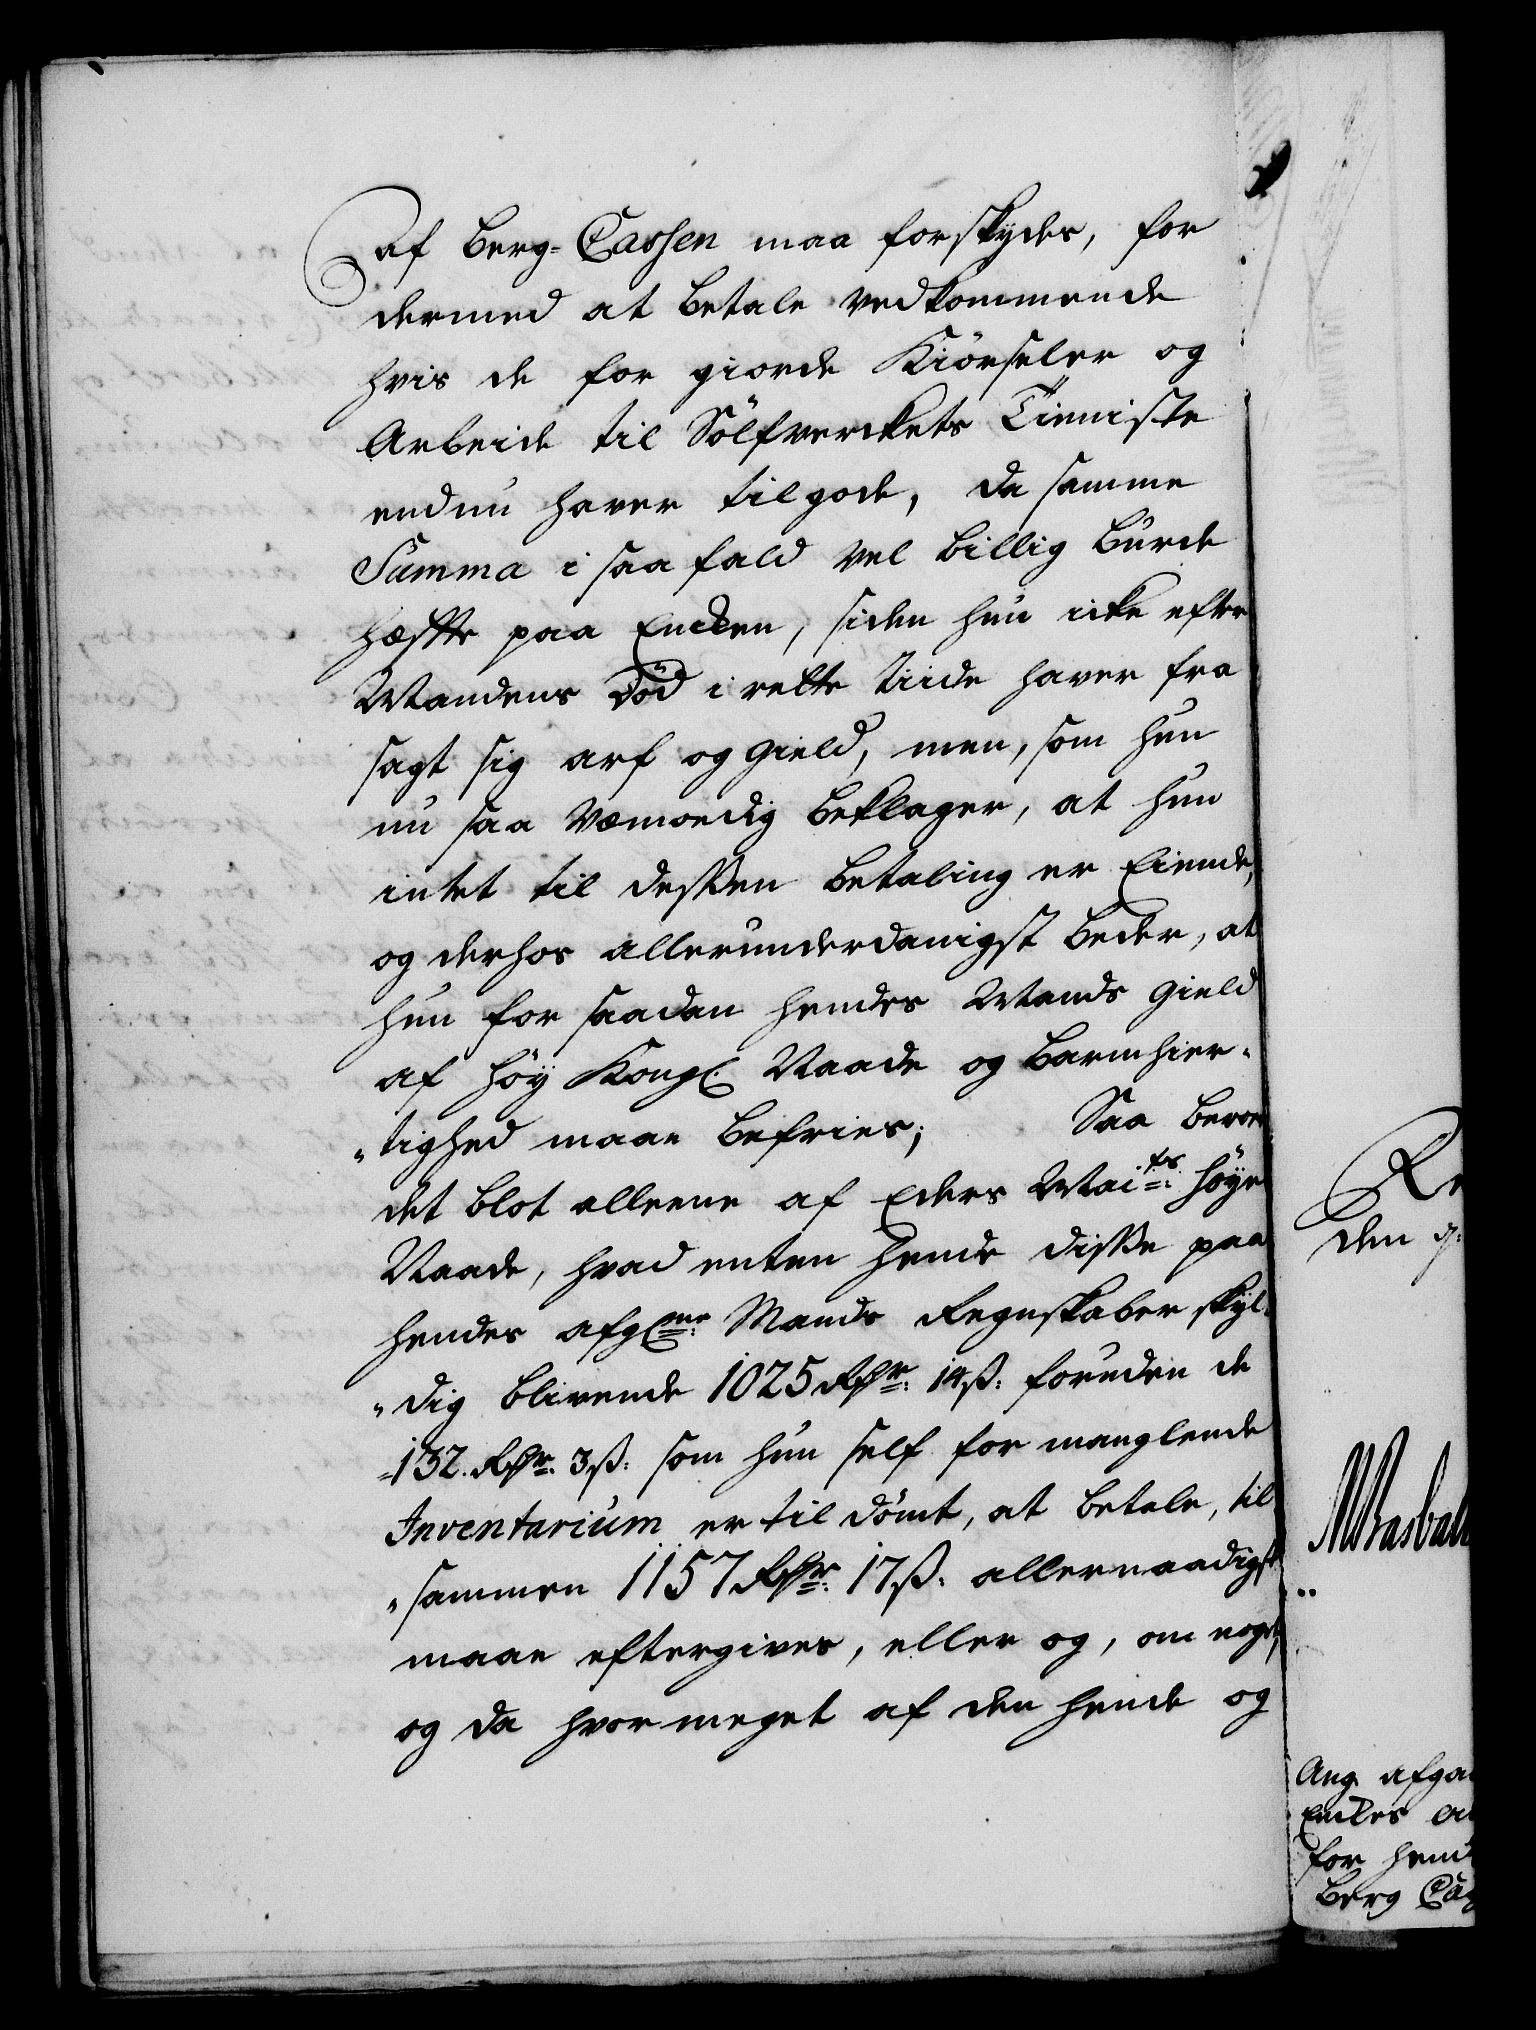 af Berg-Cassen maa forskydes, for
dermed at betale vedkommende
hvis de for giorde Kiörseler og
Arbeide til Sölfverckets Tieniste
endnu haver tilgode, da samme
Summa i saa fald vel billig burde
hæffte paa Encken, siden hun icke efter
Mandens Död i rette tiide haver fra
sagt sig arf og gield, men, som hun
nu saa væmoedig beklager, at hun
intet til dessen betaling er Eiende,
og derhos allerunderdanigst beder, at
hun for saadan hendes Mands gield
af höy Kongl. Naade og barmhier-
"tighed maae befries; Saa beroer
det blot alleene af Eders Mai:ts höye
Naade, hvad enten hende disse paa
hendes afg:ne Mands Regnskaber skyl-
"dig blivende 1025 Rdr: 14ß: foruden de
132. Rdr. 3ß: som hun self for manglende
Inventarium er til dömt, at betale, til
"sammen 1157 Rdr: 17ß: allernaadigst
maae eftergives, eller og, om noget,
og da hvormeget af den hende og
Re
den 9:
Ang. afga
Enckes
for hend
Berg Ca